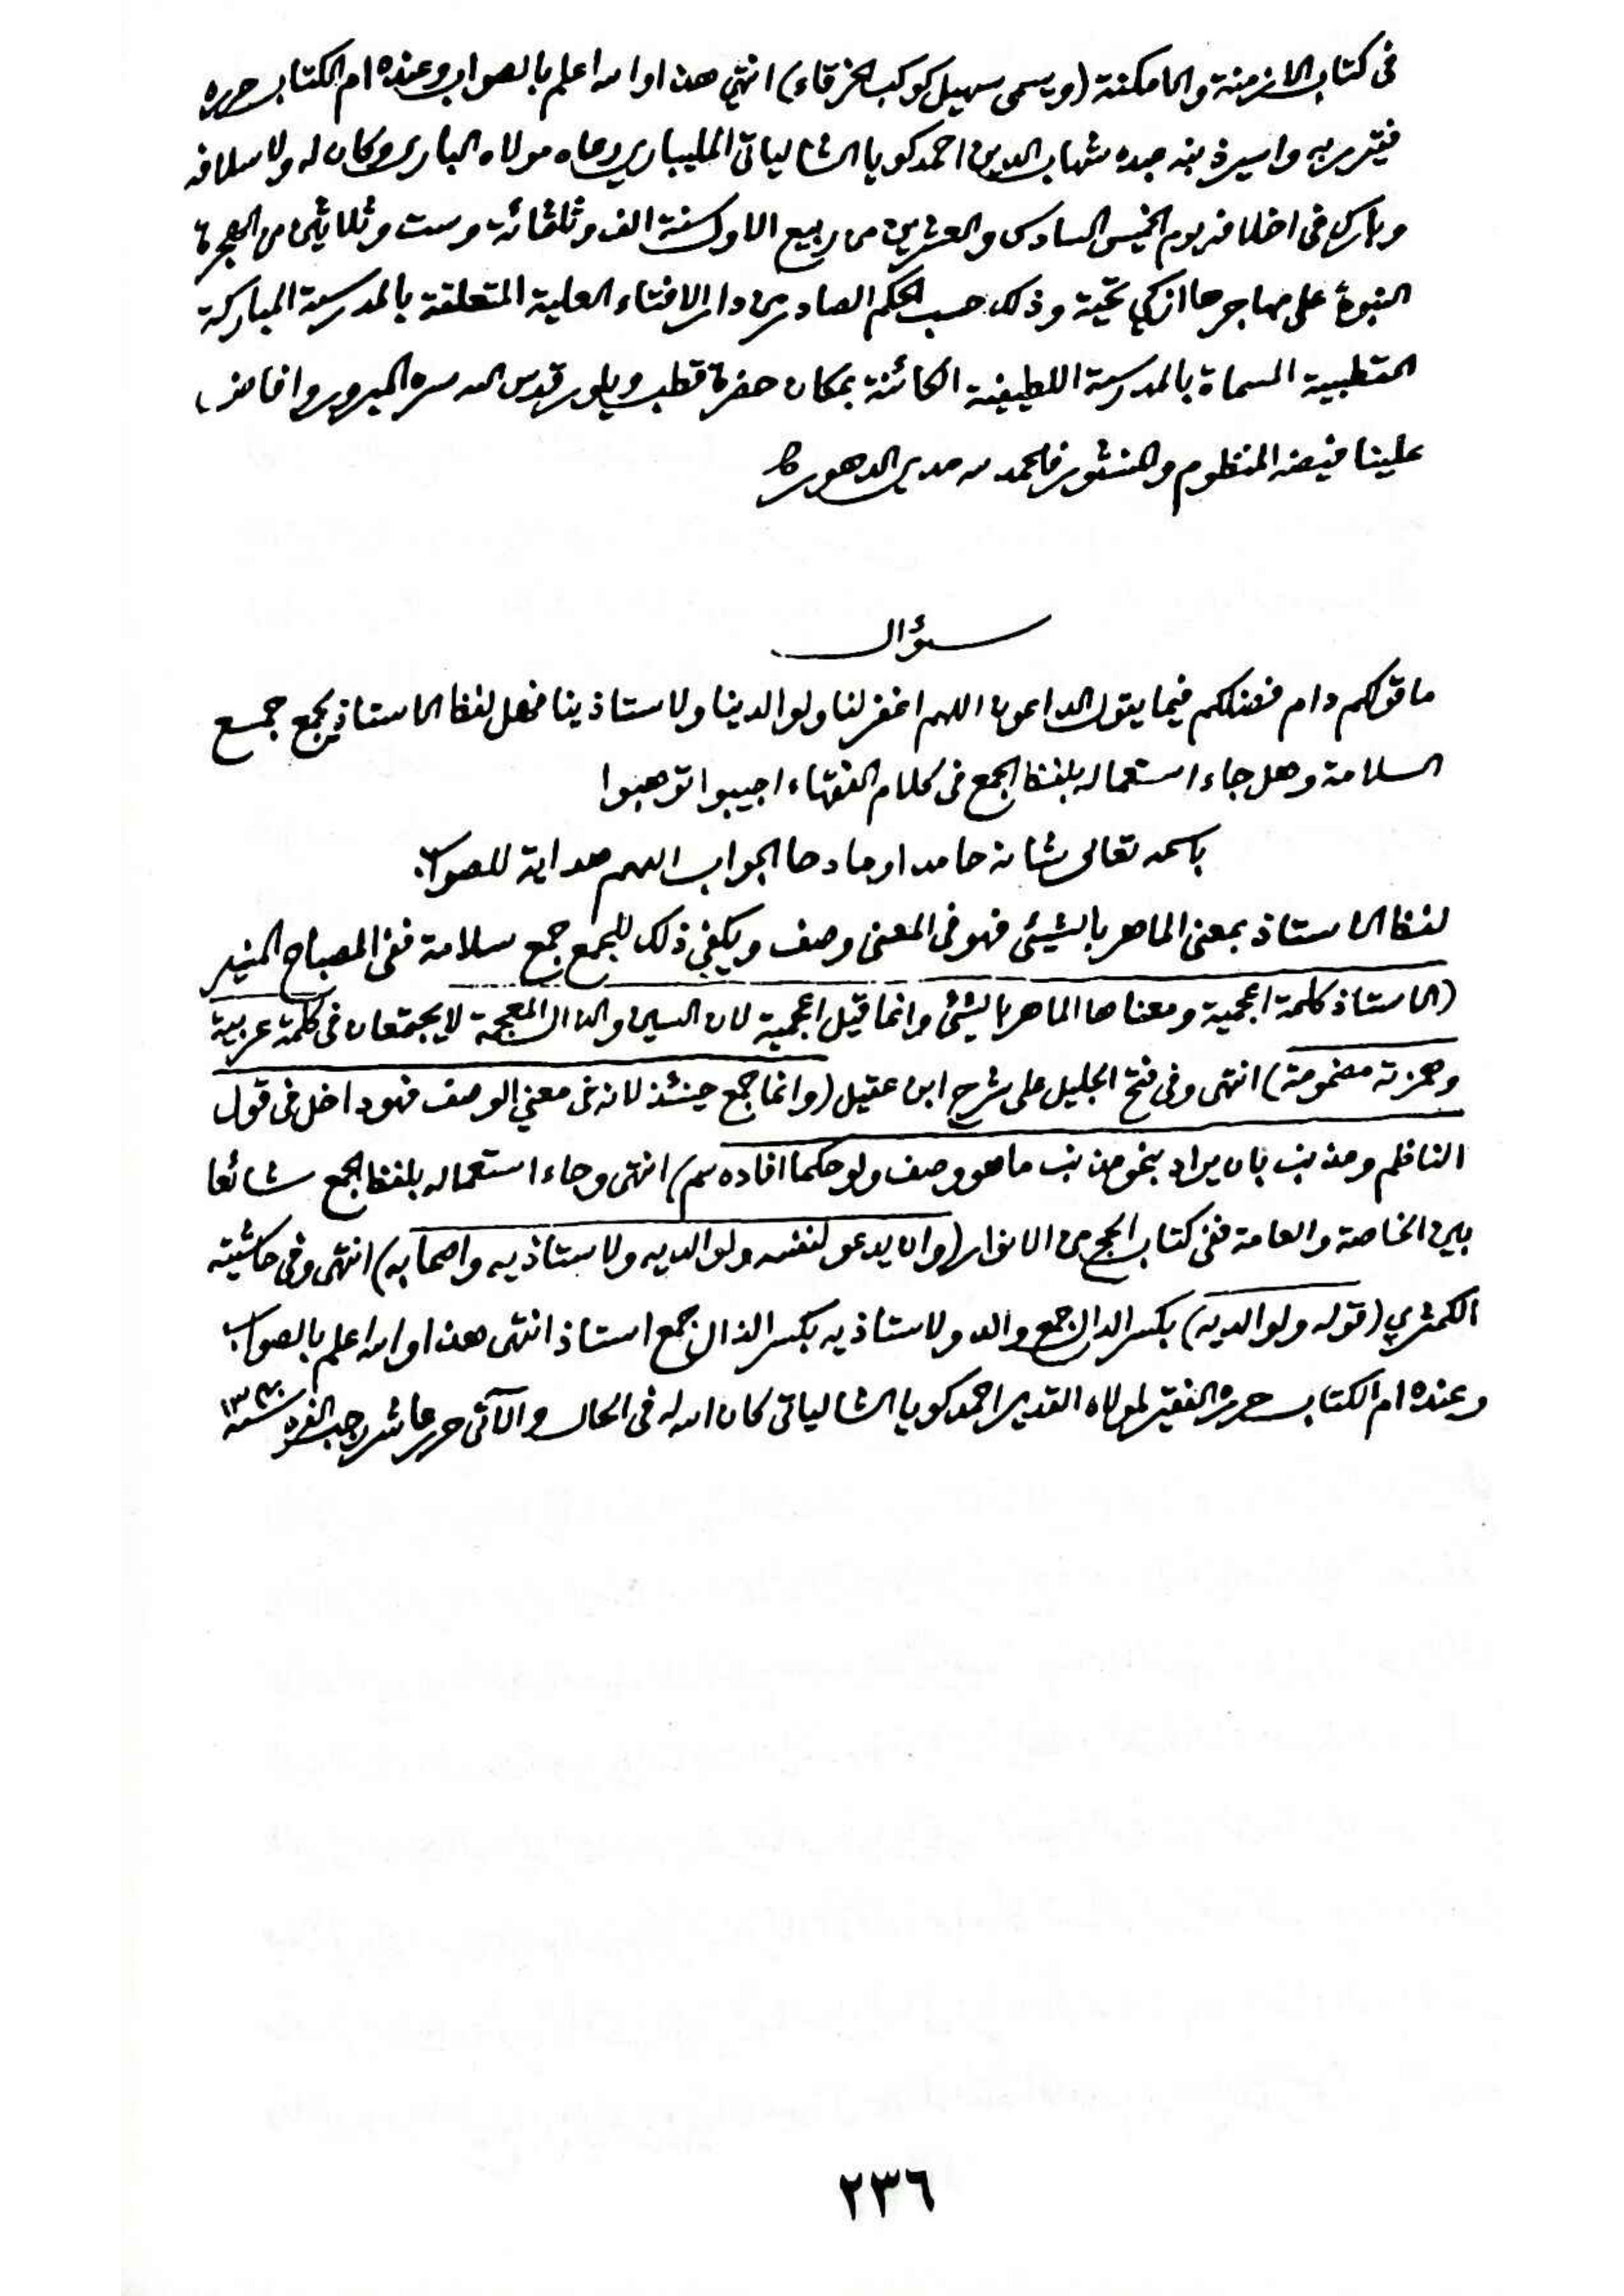 فى كتاب الازمنة والامكنة (ويسمى سهيل كوكب الخرقاء) انتهى هذا والله اعلم بالصواب وعنده ام الكتاب حرره
فقير ربه واسير ذنبه عبده شهاب الدين احمد كويا الشالياتى المليبارى رعاه مولاه البارى وكان له ولاسلافه
وبارك فى اخلافه يوم الخميس السادس والعشرين من ربيع الاول سنة الف وثلثمائة وست وثلاثين من الهجرة
النبوية على مهاجرها ازكى تحية وذلك حسب الحكم الصادر من دار الافتاء العلية المتعلقة بالمدرسة المباركة
القطبية المسماة بالمدرسة اللطيفية الكائنة بمكان حضرة قطب ويلور قدس الله سره المبرور وافاض
علينا فيضه المنظوم والمنثور فالحمد لله مدى الدهور
سؤال
ما قولكم دام فضلكم فيما يقول الداعون اللهم اغفر لنا ولوالدينا ولاستاذينا فهل لفظ الاستاذ يجمع جمع
السلامة وهل جاء استعماله بلفظ الجمع فى كلام الفقهاء اجيبوا توهبوا
باسمه تعالى شانه حامدا ومادحا الجواب اللهم هداية للصواب
لفظ الاستاذ بمعنى الماهر بالشيئ فهو فى المعنى وصف ويكفي ذلك للجمع جمع سلامة ففى المصباح المنير
(الاستاذ كلمة اعجمية ومعناها الماهر بالشيئ وانما قيل اعجمية لان السين والذال المعجمة لا يجتمعان فى كلمة عربية
وهمزته مضمومة) انتهى وفى فتح الجليل على شرح ابن عقيل (وانما جمع حينئذ لانه فى معنى الوصف فهو داخل فى قول
الناظم ومذنب بان يراد بنحو مذنب ما هو وصف ولو حكما افاده سم) انتهى وجاء استعماله بلفظ الجمع شائعا
بين الخاصة والعامة ففى كتاب الحج من الانوار (وان يدعو لنفسه ولوالديه ولاستاذيه واصحابه) انتهى وفى حاشيته
الكمثرى (قوله ولوالديه) بكسر الدال جمع والد ولاستاذيه بكسر الذال جمع استاذ انتهى هذا والله اعلم بالصواب
وعنده ام الكتاب حرره الفقير لمولاه القدير احمد كويا الشالياتى كان الله له فى الحال والآتى حرر عاشر رجب الفرد سنة
٢٣٦